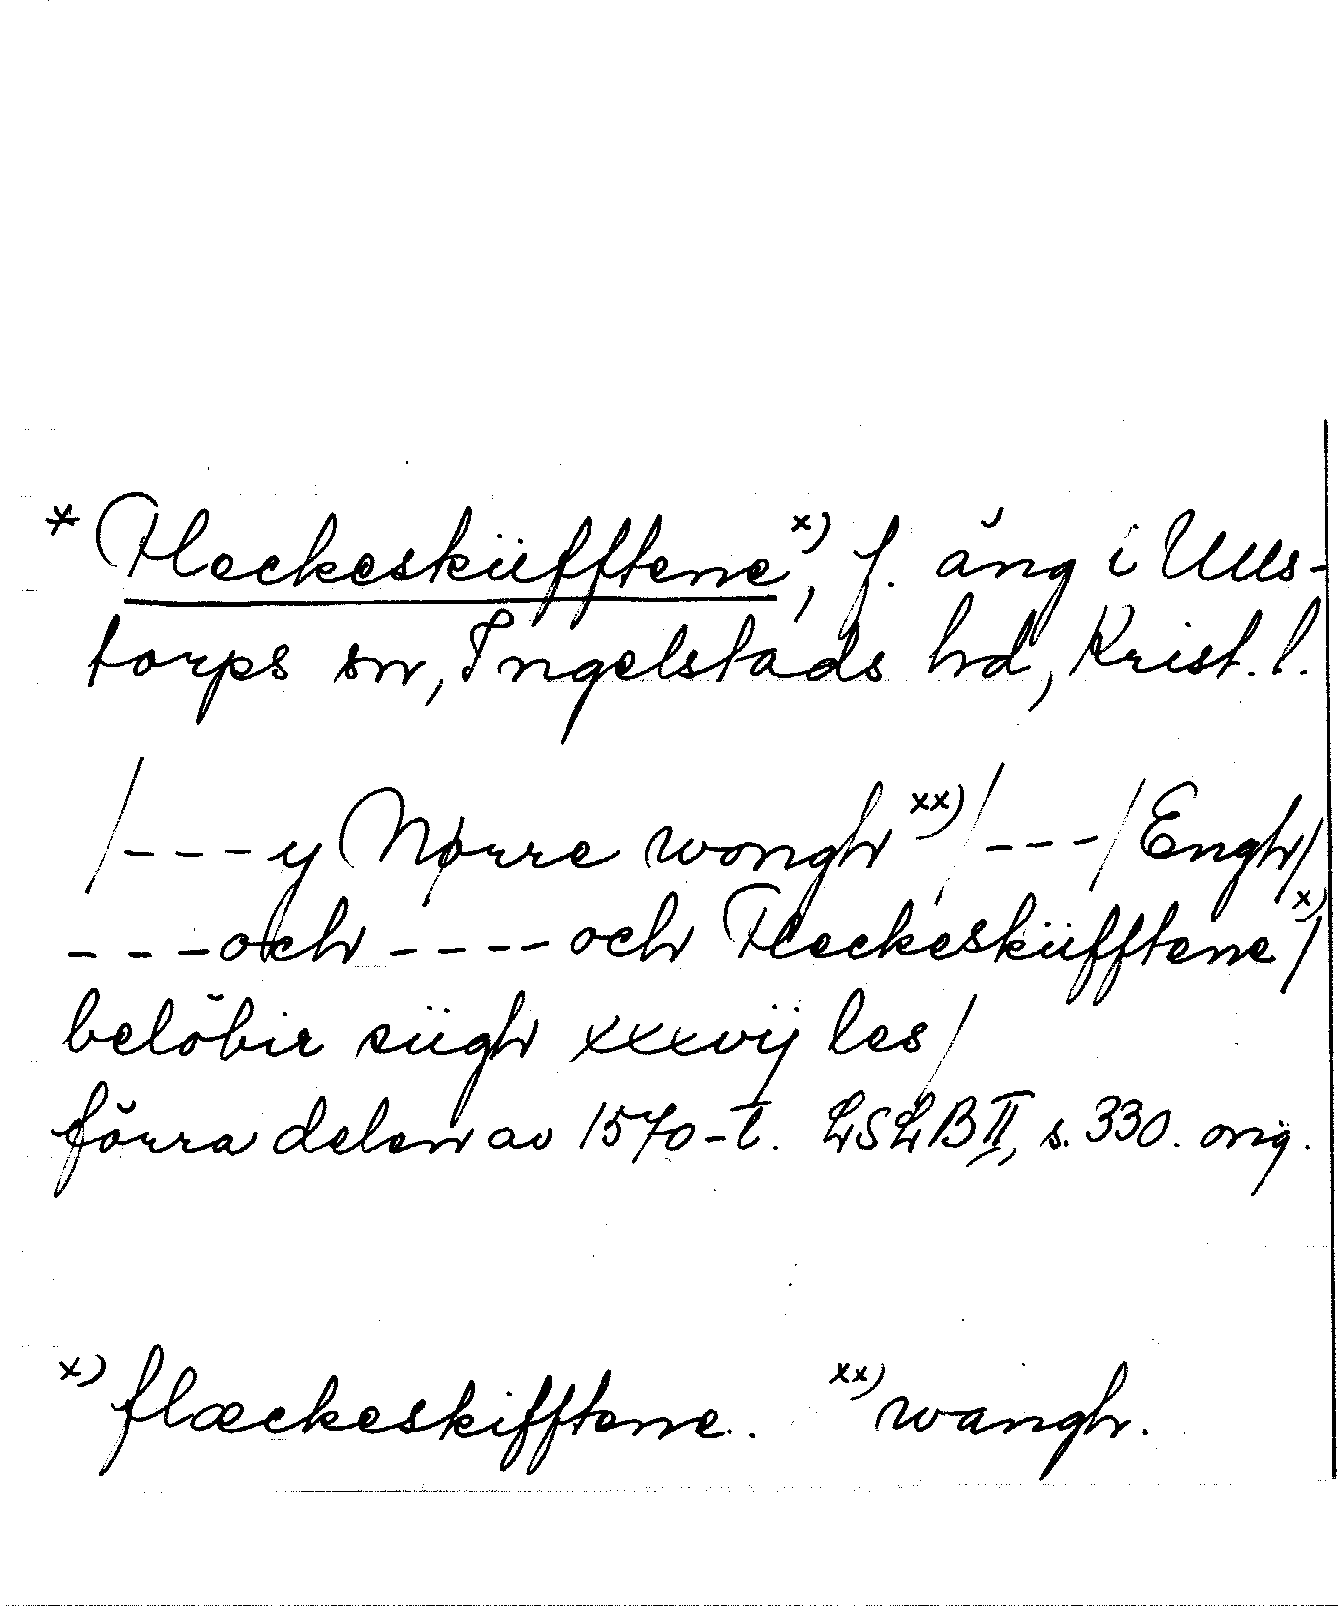 * Fleckesküfftene x), f. äng i Ulls-
torps sn, Ingelstads hd, Krist. l.
/---y Nørre wongh xx)/---/Engh/
---och ----och Fleckesküfftene x)/
belöbir siigh xxxvij les/
förra delen av 1570-t. LSLB II, s. 330. orig.
x) flæckeskifftene. xx) wangh.